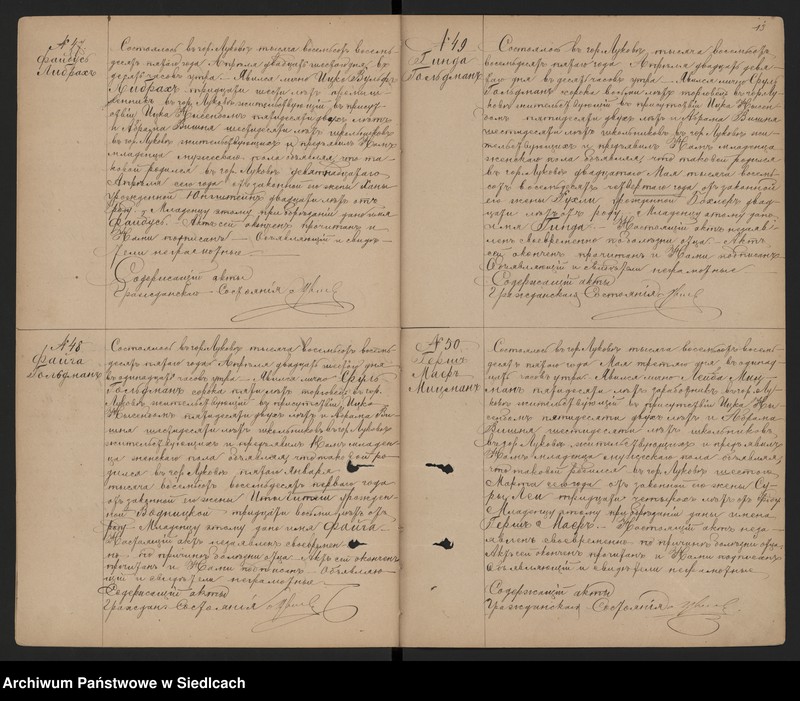 13
№ 47
Файвусъ
Либрахъ
Состоялось въ гор. Луковѣ тысяча восемьсотъ восемь-
десятъ пятаго года Апрѣля двадцать шестаго дня въ
десять часовъ утра. Явился лично Ицко Вульфъ
Либрахъ тридцати шести лѣтъ
въ гор. Луковѣ жительствующій въ присут-
ствіи Ицка пятидесяти двухъ лѣтъ
и Абрама Вишня шестидесяти лѣтъ школьниковъ
въ гор. Луковѣ жительствующихъ и предъявилъ Намъ
младенца мужескаго пола объявляя, что та-
ковой родился въ гор. Луковѣ девятнадцатаго
Апрѣля сего года отъ законной его жены Ханы
урожденной двадцати лѣтъ отъ
роду. Младенцу этому при обрѣзаніи дано имя
Файвусъ. Актъ сей оконченъ прочитанъ и
Нами подписанъ. Объявляющій и свидѣ-
тели неграмотные.
Содержащій акты
Гражданскаго Состоянія
№ 48
Файга
Гольдманъ
Состоялось въ гор. Луковѣ тысяча восемьсотъ восемь-
десятъ пятаго года Апрѣля двадцать шестаго дня
въ одинадцать часовъ утра. Явился лично Сруль
Гольдманъ сорока пяти лѣтъ торговецъ въ гор.
Луковѣ жительствующій въ присутствіи Ицка
пятидесяти двухъ лѣтъ и Абрама Ви-
шня шестидесяти лѣтъ школьниковъ въ гор. Луковѣ
жительствующихъ и предъявилъ Намъ младен-
ца женскаго пола объявляя, что таковой ро-
дился въ гор. Луковѣ пятаго Января
тысяча восемьсотъ восемьдесятъ перваго года
отъ законной его жены урожден-
ной тридцати лѣтъ отъ
роду. Младенцу этому дано имя Файга.
Настоящій актъ незаявленъ своевремен-
но по причинѣ болѣзни отца. Актъ сей оконченъ
прочитанъ и Нами подписанъ. Объявляю-
щій и свидѣтели неграмотные.
Содержащій акты
Граждан. Состоянія
№ 49
Гинда
Гольдманъ
Состоялось въ гор. Луковѣ тысяча восемьсотъ
восемьдесятъ пятаго года Апрѣля двадцать девя-
таго дня въ десять часовъ утра. Явился лично Сруль
Гольдманъ сорока лѣтъ торговецъ въ гор. Лу-
ковѣ жительствующій въ присутствіи Ицка
пятидесяти двухъ лѣтъ и Абрама Вишня
шестидесяти лѣтъ школьниковъ въ гор. Луковѣ жи-
тельствующихъ и предъявилъ Намъ младенца
женскаго пола объявляя, что таковой родился
въ гор. Луковѣ двадцатаго Мая тысяча восемь-
сотъ восемьдесятъ четвертаго года отъ законной
его жены урожденной двад-
цати лѣтъ отъ роду. Младенцу этому дано
имя Гинда. Настоящій актъ незаяв-
ленъ своевременно по болѣзни отца. Актъ
сей оконченъ прочитанъ и Нами подписанъ.
Объявляющій и свидѣтели неграмотные.
Содержащій акты
Гражданскаго Состоянія
№ 50
Гершъ
Мееръ
Мицманъ
Состоялось въ гор. Луковѣ тысяча восемьсотъ восемь-
десятъ пятаго года Мая третьяго дня въ одинад-
цать часовъ утра. Явился лично Лейба Миц-
манъ пятидесяти лѣтъ въ гор. Лу-
ковѣ жительствующій въ присутствіи Ицка
пятидесяти двухъ лѣтъ и Абрама
Вишня шестидесяти лѣтъ школьниковъ
въ гор. Луковѣ жительствующихъ и предъявилъ
Намъ младенца мужескаго пола объявляя,
что таковой родился въ гор. Луковѣ шестаго
Марта сего года отъ законной его жены Су-
ры тридцати четырехъ лѣтъ отъ роду
Младенцу этому при обрѣзаніи даны имена
Гершъ Мееръ. Настоящій актъ неза-
явленъ своевременно по причинѣ болѣзни отца.
Актъ сей оконченъ прочитанъ и Нами подписанъ
Объявляющій и свидѣтели неграмотные.
Содержащій акты
Гражданскаго Состоянія
Archiwum Państwowe w Siedlcach